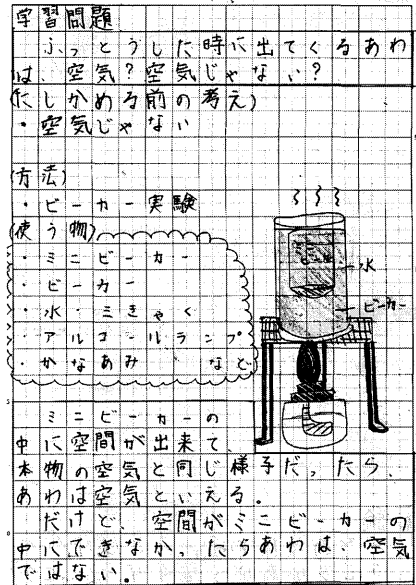 学習問題
ふっとうした時に出てくるあわ
は、空気?空気じゃない?
(たしかめる前の考え)
・空気じゃない
(方法)
・ビーカー実験
(使う物)
・ミニビーカー
・ビーカー
・水・三きゃく
・アルコールランプ
・かなあみ など
水
ビーカー
ミニビーカーの
中に空間が出来て、
本物の空気と同じ様子だったら、
あわは空気といえる。
だけど、空間がミニビーカーの
中にできなかったらあわは、空気
ではない。